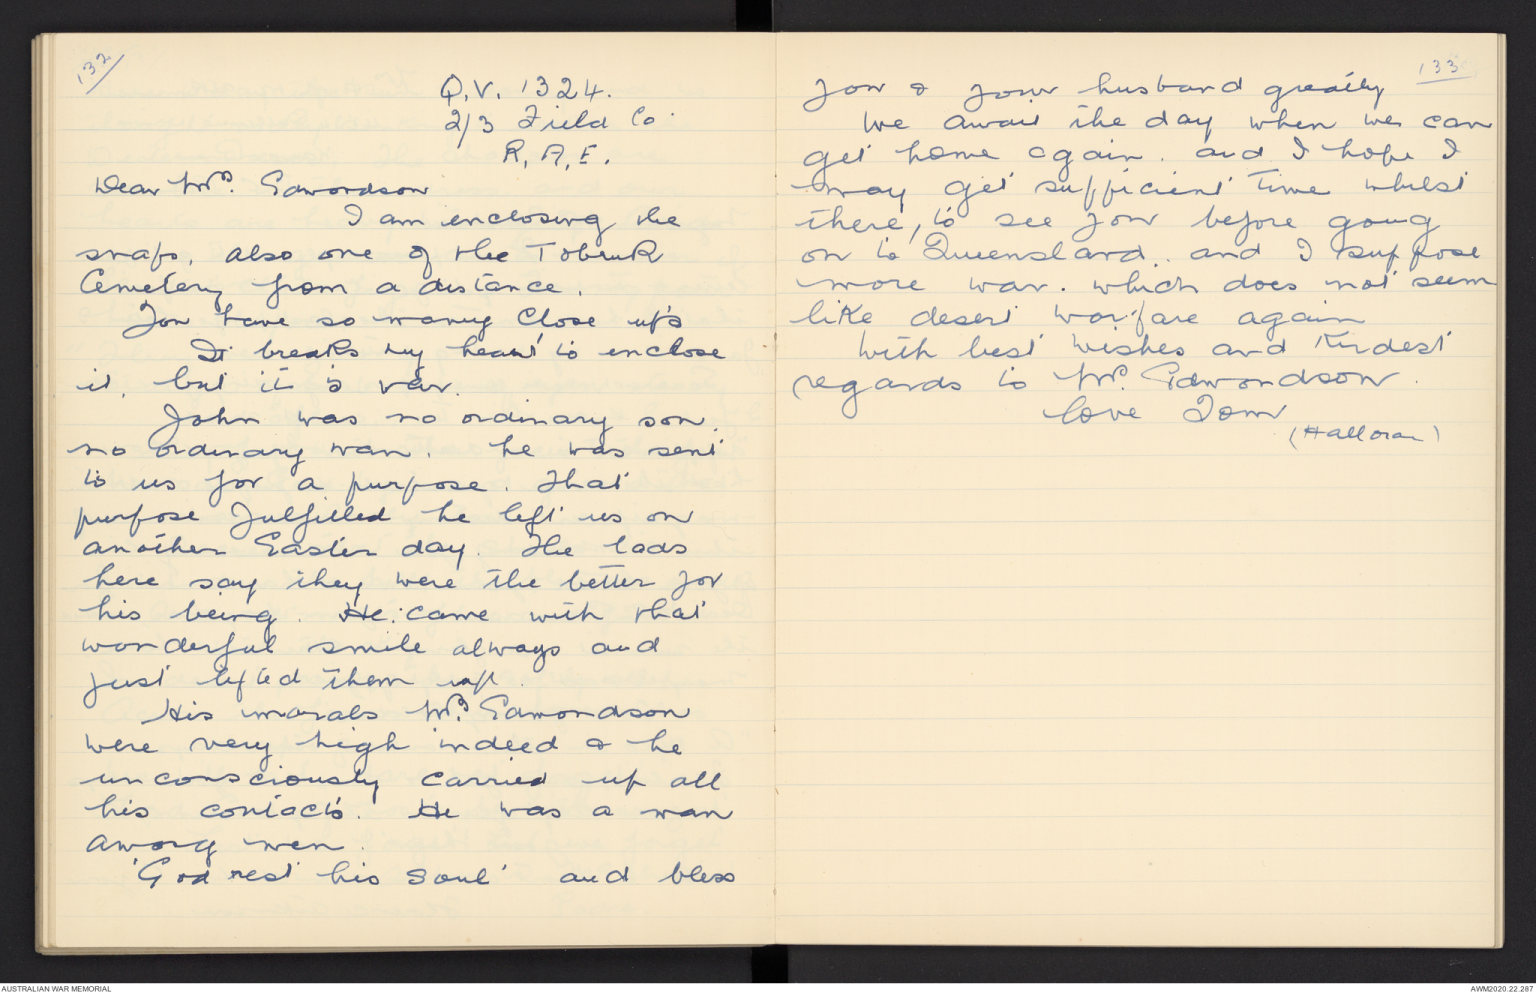 132
Q.V. 1324.
2/3 Field Co.
R.A.E.
Dear Mrs. Edmondson
I am enclosing the
snaps, also one of the Tobruk
Cemetery from a distance.
You have so many close ups
It breaks my heart to enclose
it, but it is war.
John was no ordinary son,
no ordinary man. he was sent
to us for a purpose. That
purpose fulfilled he left us on
another Easter day. The lads
here say they were the better for
his being. He came with that
wonderful smile always and
just lifted them up.
His morals Mrs Edmondson
were very high indeed & he
unconsciously carried up all
his contacts. He was a man
among men.
'God rest his soul' and bless
133
you & your husband greatly
We await the day when we can
get home again. and I hope I
may get sufficient time whilst
there, to see you before going
on to Queensland.. and I suppose
more war. which does not seem
like desert warfare again
With best wishes and kindest
regards to Mr. Edmondson.
love Tom
(Halloran)
AUSTRALIAN WAR MEMORIAL
AWM2020.22.287